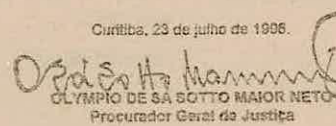 Curitiba, 23 de julho de 1996.
OLYMPIO DE SÁ SOTTO MAIOR NETO
Procurador Geral de Justiça